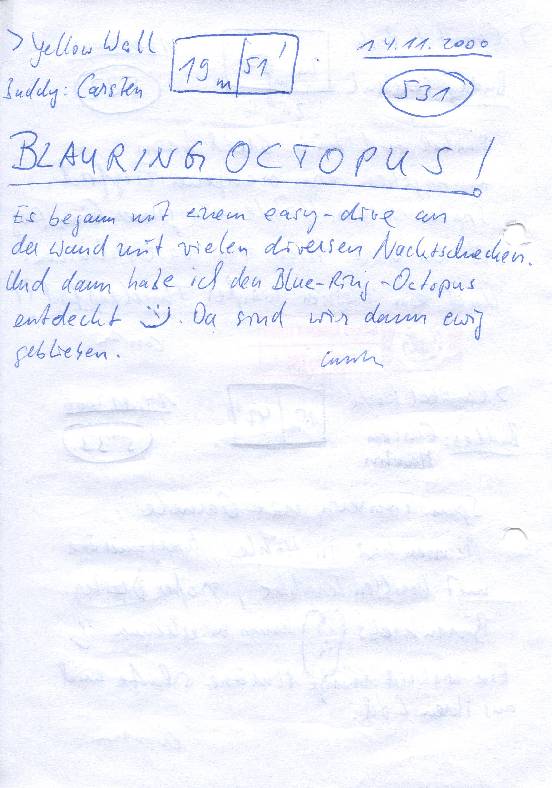 > Yellow Wall
19 m | 51'
14.11.2000
Buddy: Carsten
531
BLAURING OCTOPUS!
Es begann mit einem easy-dive an
der Wand mit vielen diversen Nachtschnecken.
Und dann habe ich den Blue-Ring-Octopus
entdeckt :-). Da sind wir dann ewig
geblieben.